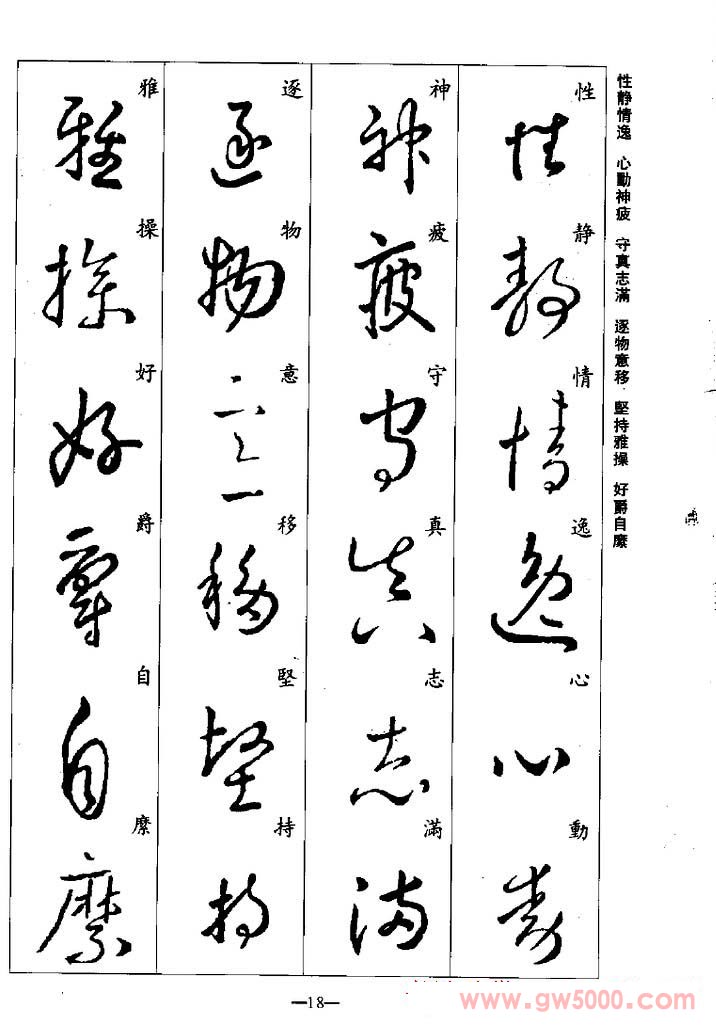 性静情逸 心動神疲 守真志滿 逐物意移 堅持雅操 好爵自縻
性静情逸心動
神疲守真志滿
逐物意移堅持
雅操好爵自縻
—18—
www.gw5000.com